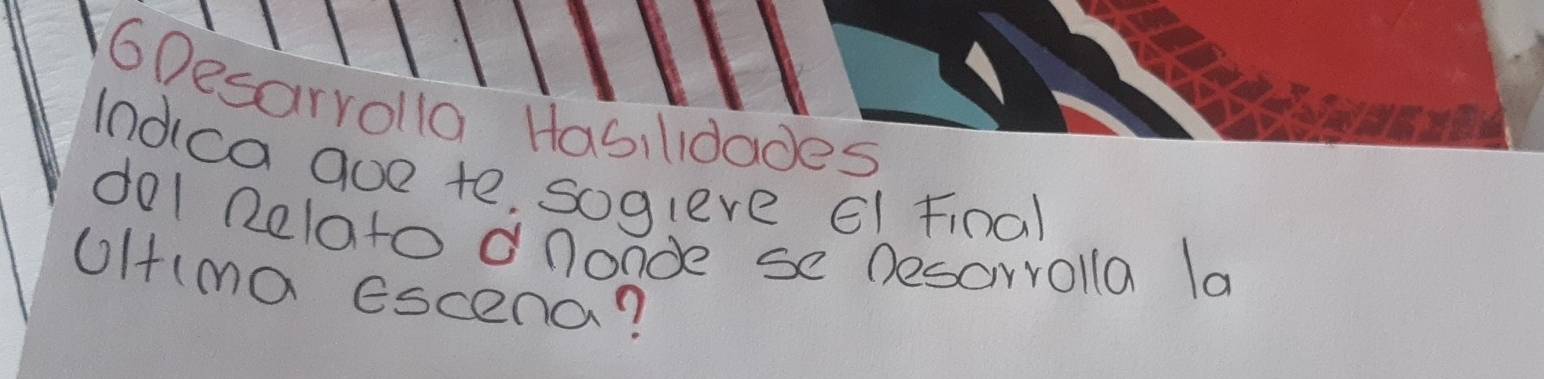 6 Desarrolla Hasilidades
Indica que te. sogiere El Final
del Relato d Donde se Desarrolla la
Ultima Escena?